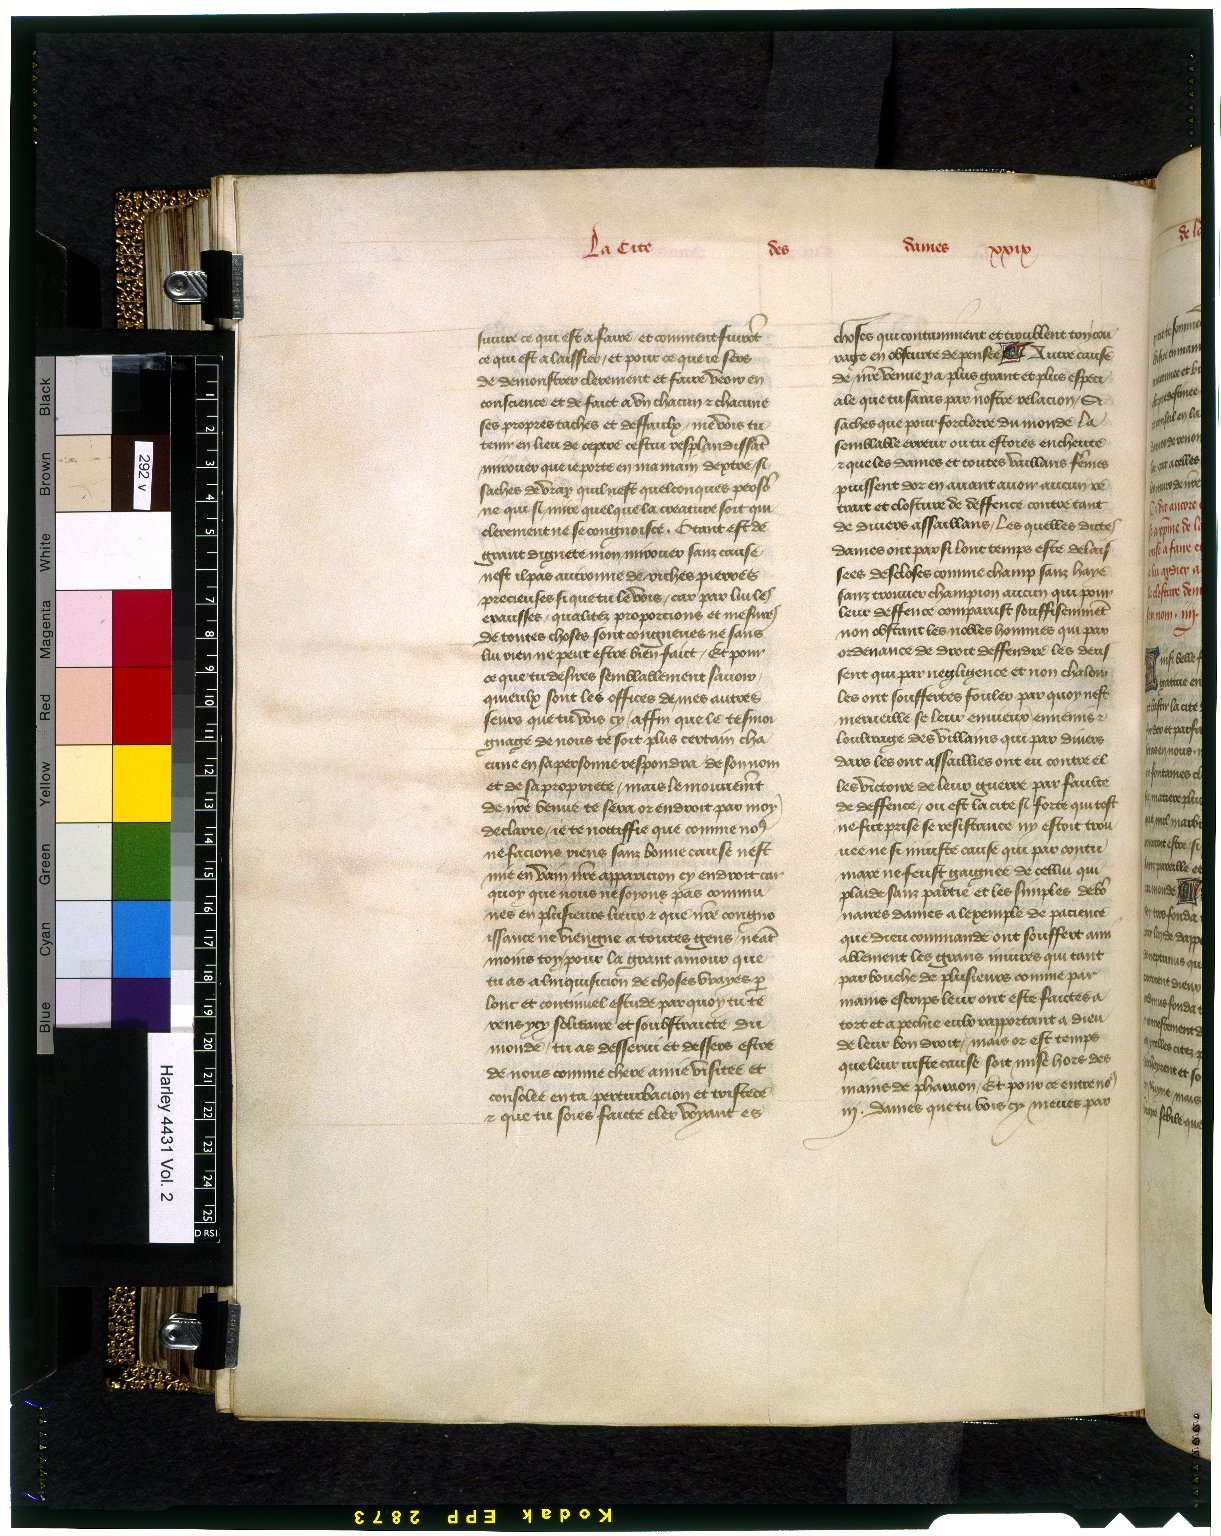 La Cite des dames xxix
suivre ce qui est a faire / et comment fuiront
ce qui est a laissier / et pour ce que ie sers
de demonstrer clerement et faire veoir en
conscience et de faict a vn chacun z chacune
ses propres taches et deffaulx / me vois tu
tenir en lieu de ceptre cestui resplandissāt
mirouer que ie porte en ma main dextre / si
saches de vray quil nest quelconques persō
ne qui si mire quelque la creature soit qui
clerement ne se congnoisce . O tant est de
grant dignete mon mirouer sanz cause
nest il pas auironne de riches pierres
precieuses si que tu le vois / car par lui les
exausses / qualitez proporcions et mesures
de toutes choses sont congneues ne sans
lui rien ne peut estre bien faict / Et pour
ce que tu desires semblablement sauoir /
quieulx sont les offices de mes autres
seurs que tu vois cy / affin que le tesmoi
gnage de nous te soit plus certain cha
cune en sa personne respondra de son nom
et de sa propriete / mais le mouuemt
de nrē venue te sera or endroit par moy
declarie / ie te nottiffie que comme no9
ne facions riens sanz bonne cause nest
mie en vain nrē apparicion cy endroit car
quoy que nous ne soyons pas commu
nes en plusieurs lieux z que nrē congno
issance ne viengne a toutes gens / neāt
moins toy pour la grant amour que
tu as a linquisicion de choses vrayes p
lonc et continuel estude par quoy tu te
rens ycy solitaire et soubstraicte du
monde / tu as desserui et dessers estre
de nous comme chere amie visitee et
consolee en ta perturbacion et tristece
z que tu soies faicte cler voyant es
choses qui contaminent et troublent ton cou
rage en obscurte de pensee Autre cause
de nrē venue y a plus grant et plus especi
ale que tu saras par nostre relacion / Si
saches que pour forclorre du monde la
semblable erreur ou tu estoies encheute
z que les dames et toutes vaillans fēmes
puissent dor en auant auoir aucun re
trait et closture de deffence contre tant
de diuers assaillans / Les quelles dictes
dames ont par si lonc temps este delais
sees descloses comme champ sanz haye
sanz trouuer champion aucun qui pour
leur deffence comparust souffisemmēt
non obstant les nobles hommes qui par
ordenance de droit deffendre les deus
sent qui par negligence et non chaloir
les ont souffertes fouler par quoy nest
merueille se leur enuieux ennemis z
loultrage des villains qui par diuers
dars les ont assaillies ont eu contre el
les victoire de leur guerre par faulte
de deffence / ou est la cite si forte qui tost
ne fut prise se resistance ny estoit trou
uee ne si iniuste cause qui par contu
mace ne feust gaignee de cellui qui
plaide sanz partie et les simples debō
naires dames a lexemple de pacience
que dieu commande ont souffert ami
ablement les grans iniures qui tant
par bouche de plusieurs comme par
mains escrips leur ont este faictes a
tort et a pechie eulx rapportant a dieu
de leur bon droit / mais or est temps
que leur iuste cause soit mise hors des
mains de pharaon / Et pour ce entre no9
iij . dames que tu vois cy / meues par
de la
Black
Brown
White
Magenta
Red
Yellow
Green
Cyan
Blue
292 v
1 2 3 4 5 6 7 8 9 10 11 12 13 14 15 16 17 18 19 20 21 22 23 24 25
Harley 4431 Vol. 2
Kodak EPP 2873